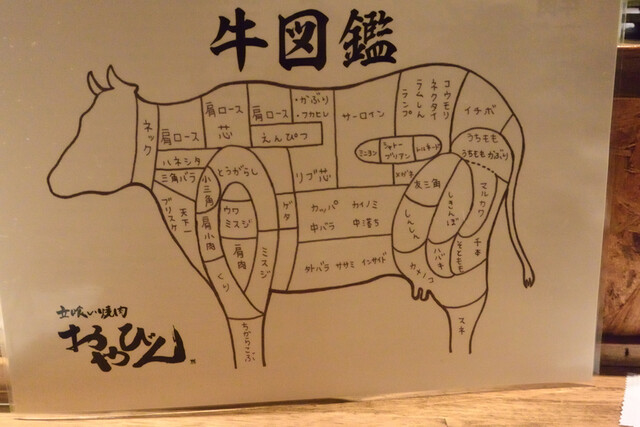 牛図鑑
ネック
肩ロース
肩ロース
芯
肩ロース
・かぶり
・フカヒレ
えんぴつ
サーロイン
リブ芯
コウモリ
ネクタイ
ラムしん
ランプ
イチボ
ミニヨン
シャトー
ブリアン
トルネード
うちもも
うちもも かぶり
ハネシタ
三角バラ
ブリスケ
天下一
小三角
とうがらし
肩小肉
ウワ
ミスジ
肩肉
ミスジ
くり
ちからこぶ
ゲタ
カッパ
カイノミ
中バラ
中落ち
外バラ ササミ インサイド
友三角
しんしん
カメノコ
しきんぼ
ハバキ
そともも
マルカワ
千本
スネ
立喰い焼肉
おやびん